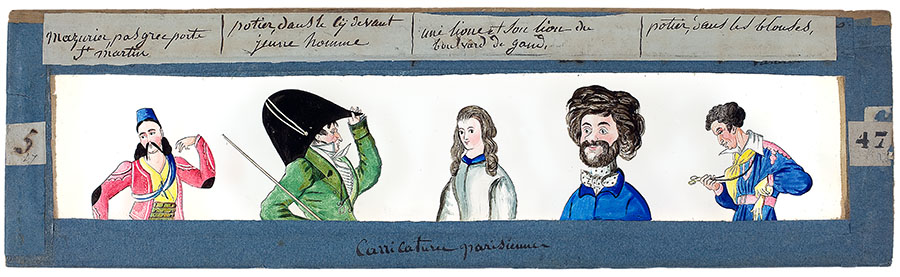 Mazurier pas grec porte
St martin
potier, dans le cy devant
jeune homme
une lione et son lion du
boulvard de gand,
potier, dans les blouses,
5
47
Carricature parisienne